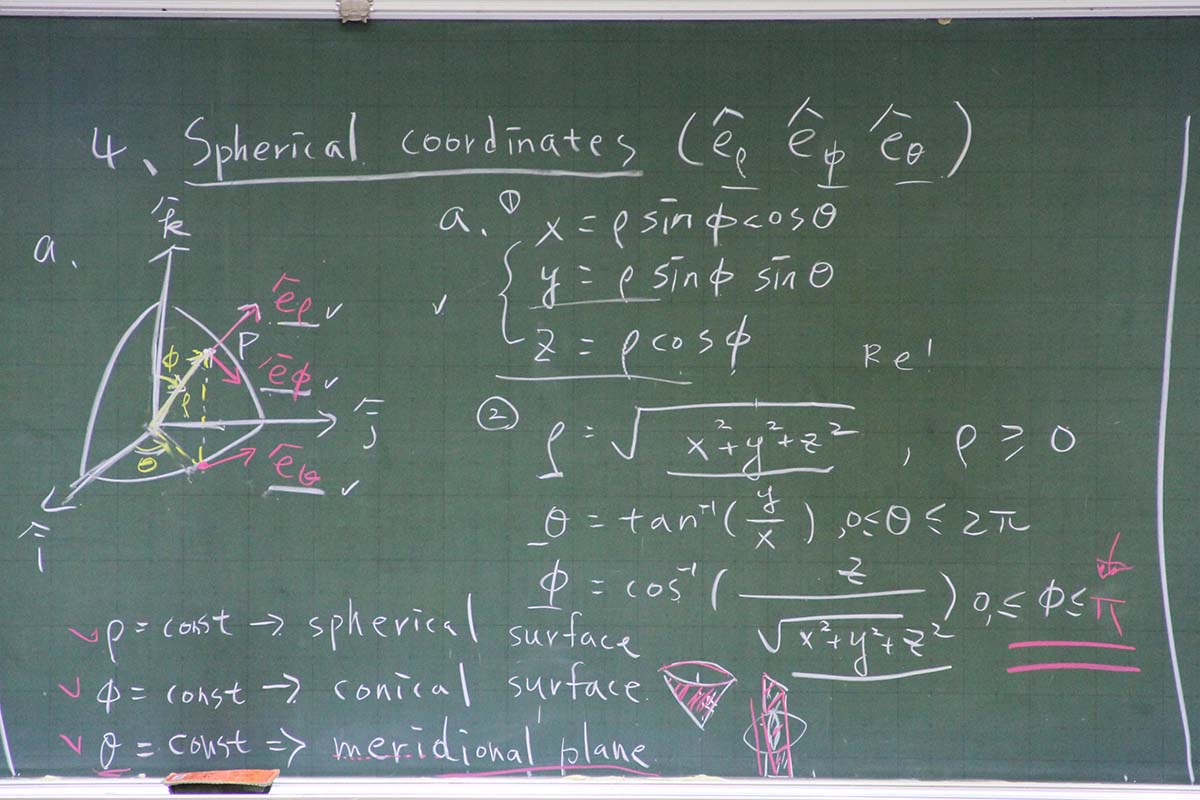 4、Spherical coordinates (ê_ρ ê_φ ê_θ)
a.
k̂
ê_ρ ✓
P
φ
ρ
ê_φ ✓
ĵ
θ
ê_θ ✓
î
a. ① x = ρ sinφ cosθ
✓ y = ρ sinφ sinθ
z = ρ cosφ
Re!
② ρ = √(x²+y²+z²) , ρ ≥ 0
θ = tan⁻¹(y/x) , 0 ≤ θ ≤ 2π
φ = cos⁻¹(z/√(x²+y²+z²)) 0, ≤ φ ≤ π
✓ ρ = const → spherical surface
✓ φ = const → conical surface
✓ θ = const ⇒ meridional plane